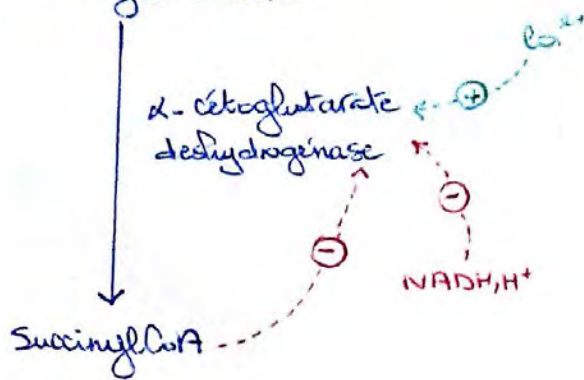 Ca2+
+
α-cétoglutarate
deshydrogénase
-
-
NADH,H+
Succinyl CoA